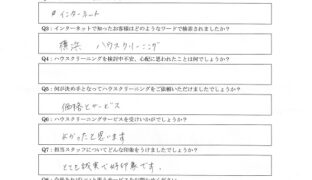 #インターネット
Q3：インターネットで知ったお客様はどのようなワードで検索されましたか？
横浜　ハウスクリーニング
Q4：ハウスクリーニングを検討中不安、心配に思われたことは何でしょうか？
Q5：何が決め手となってハウスクリーニングをご依頼いただけましたでしょうか？
価格とサービス
Q6：ハウスクリーニングサービスを受けいかがでしょうか？
よかったと思います
Q7：担当スタッフについてどんな印象をうけましたでしょうか？
とても誠実で好印象です。